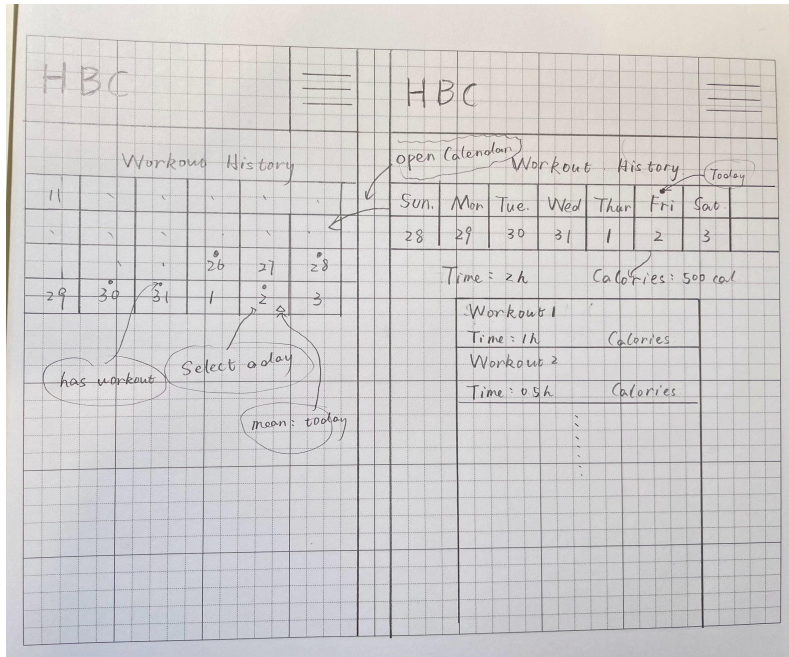 HBC
Workout History
11
26 27 28
29 30 31 1 2 3
has workout
Select a day
mean: today
HBC
open Calendar
Workout History
Today
Sun. Mon Tue. Wed Thur Fri Sat.
28 29 30 31 1 2 3
Time: 2h Calories: 500 cal
Workout 1
Time: 1h Calories
Workout 2
Time: 0.5h Calories